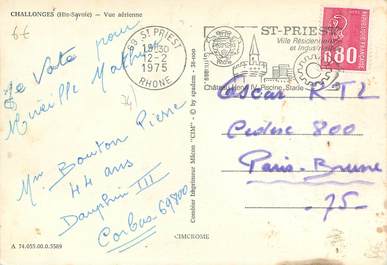 CHALLONGES (Hte-Savoie) — Vue aérienne
6€
Je Vote pour
Mireille Mathieu
Mr Bouton Pierre
44 ans
Dauphin III
Corbas 69800
69 ST PRIEST
12-2
1975
RHONE
ST-PRIEST
Ville Résidentielle
et Industrielle
Château Henri IV, Piscine, Stade
0,80
Oscar RTL
Cedex 800
Paris-Brune
-75-
Combier Imprimeur Mâcon "CIM"
CIMCROME
A 74.055.00.0.3589